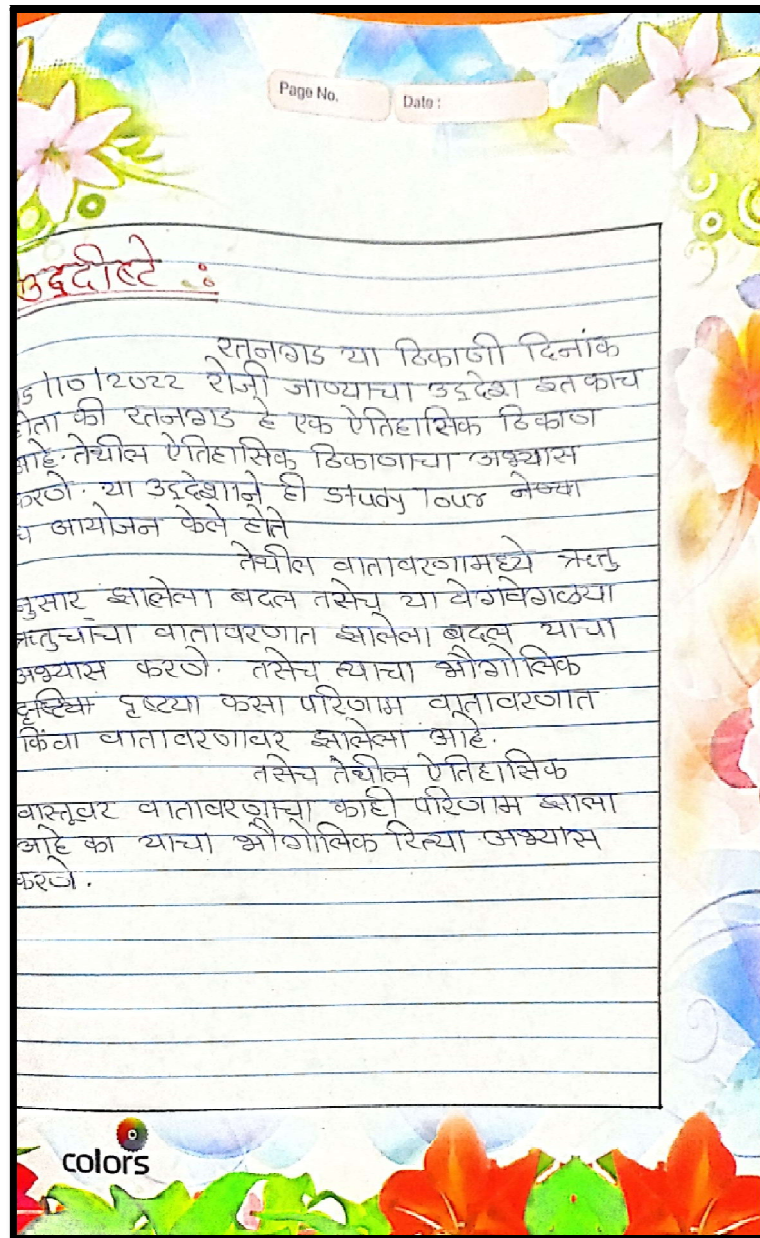 Page No.
Date :
उद्दीष्टे :
रतनगड या ठिकाणी दिनांक
/10/2022 रोजी जाण्याचा उद्देश इतकाच
होता की रतनगड हे एक ऐतिहासिक ठिकाण
आहे. तेथील ऐतिहासिक ठिकाणाचा अभ्यास
करणे. या उद्देशाने ही study Tour नेण्या
चे आयोजन केले होते
तेथील वातावरणामध्ये ऋतु
नुसार झालेला बदल तसेच या वेगवेगळ्या
ऋतुचांचा वातावरणात झालेला बदल याचा
अभ्यास करणे. तसेच त्याचा भौगोलिक
दृष्ट्या कसा परिणाम वातावरणात
किंवा वातावरणावर झालेला आहे.
तसेच तेथील ऐतिहासिक
वास्तूवर वातावरणाचा काही परिणाम झाला
आहे का याचा भौगोलिक रित्या अभ्यास
करणे.
colors